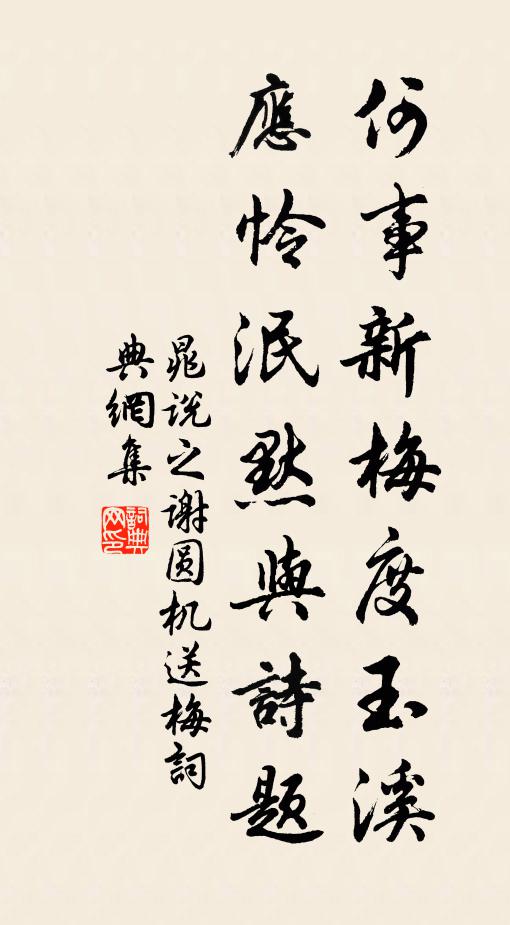 何事新梅度玉溪
應怜泯默與詩題
晁说之谢圆机送梅詞
典網集
詞典网印